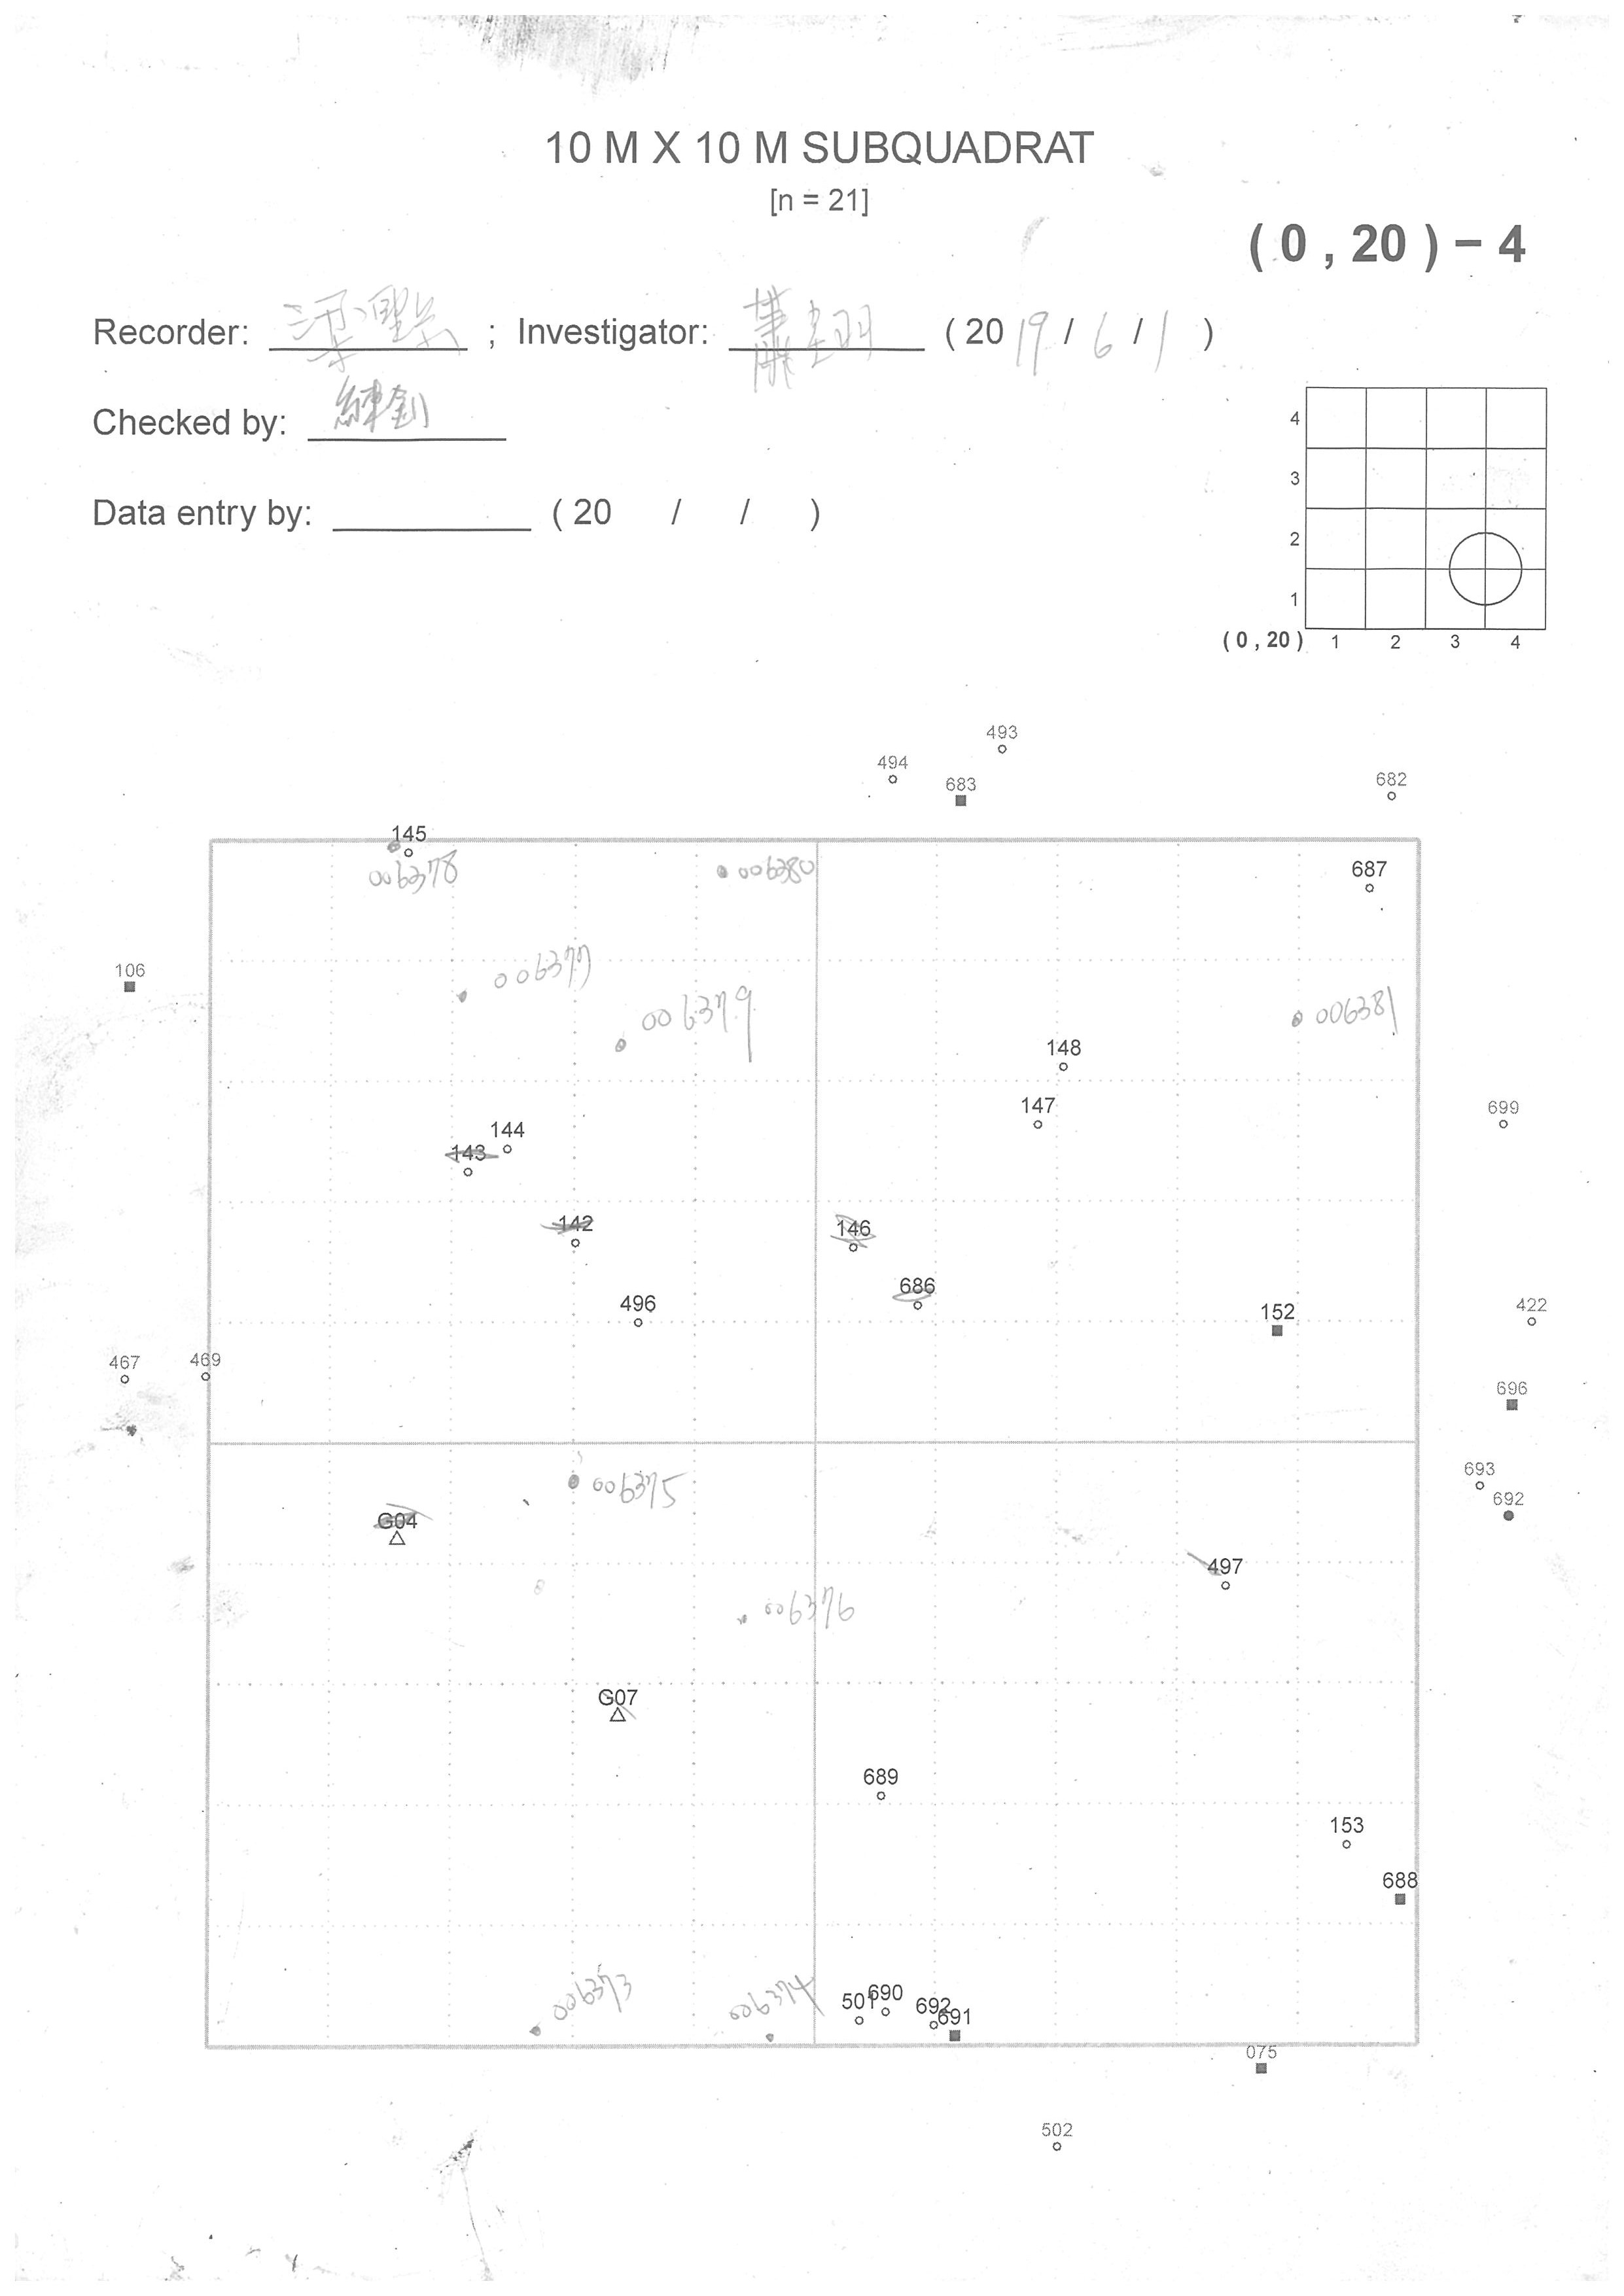 10 M X 10 M SUBQUADRAT
[n = 21]
( 0 , 20 ) − 4
Recorder: ; Investigator: ( 2019 / 6 / 1 )
Checked by: 練釗
Data entry by: ( 20 / / )
4
3
2
1
( 0 , 20 ) 1 2 3 4
493
494
683
682
145
006378
006380
687
106
006377
006379
006381
148
147
699
144
143
142
146
686
496
152
422
467
469
696
693
692
006375
G04
497
006376
G07
689
153
688
006373
006374
501
690
692
691
075
502